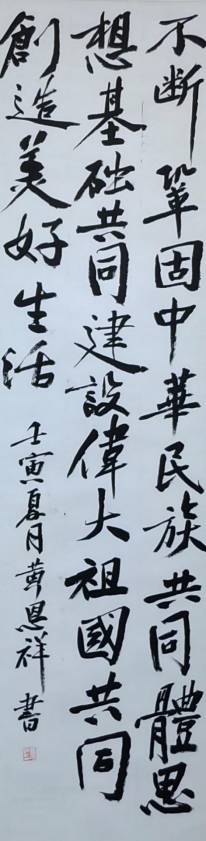 不断鞏固中華民族共同體思
想基础共同建設偉大祖國共同
創造美好生活
壬寅夏月黄恩祥書